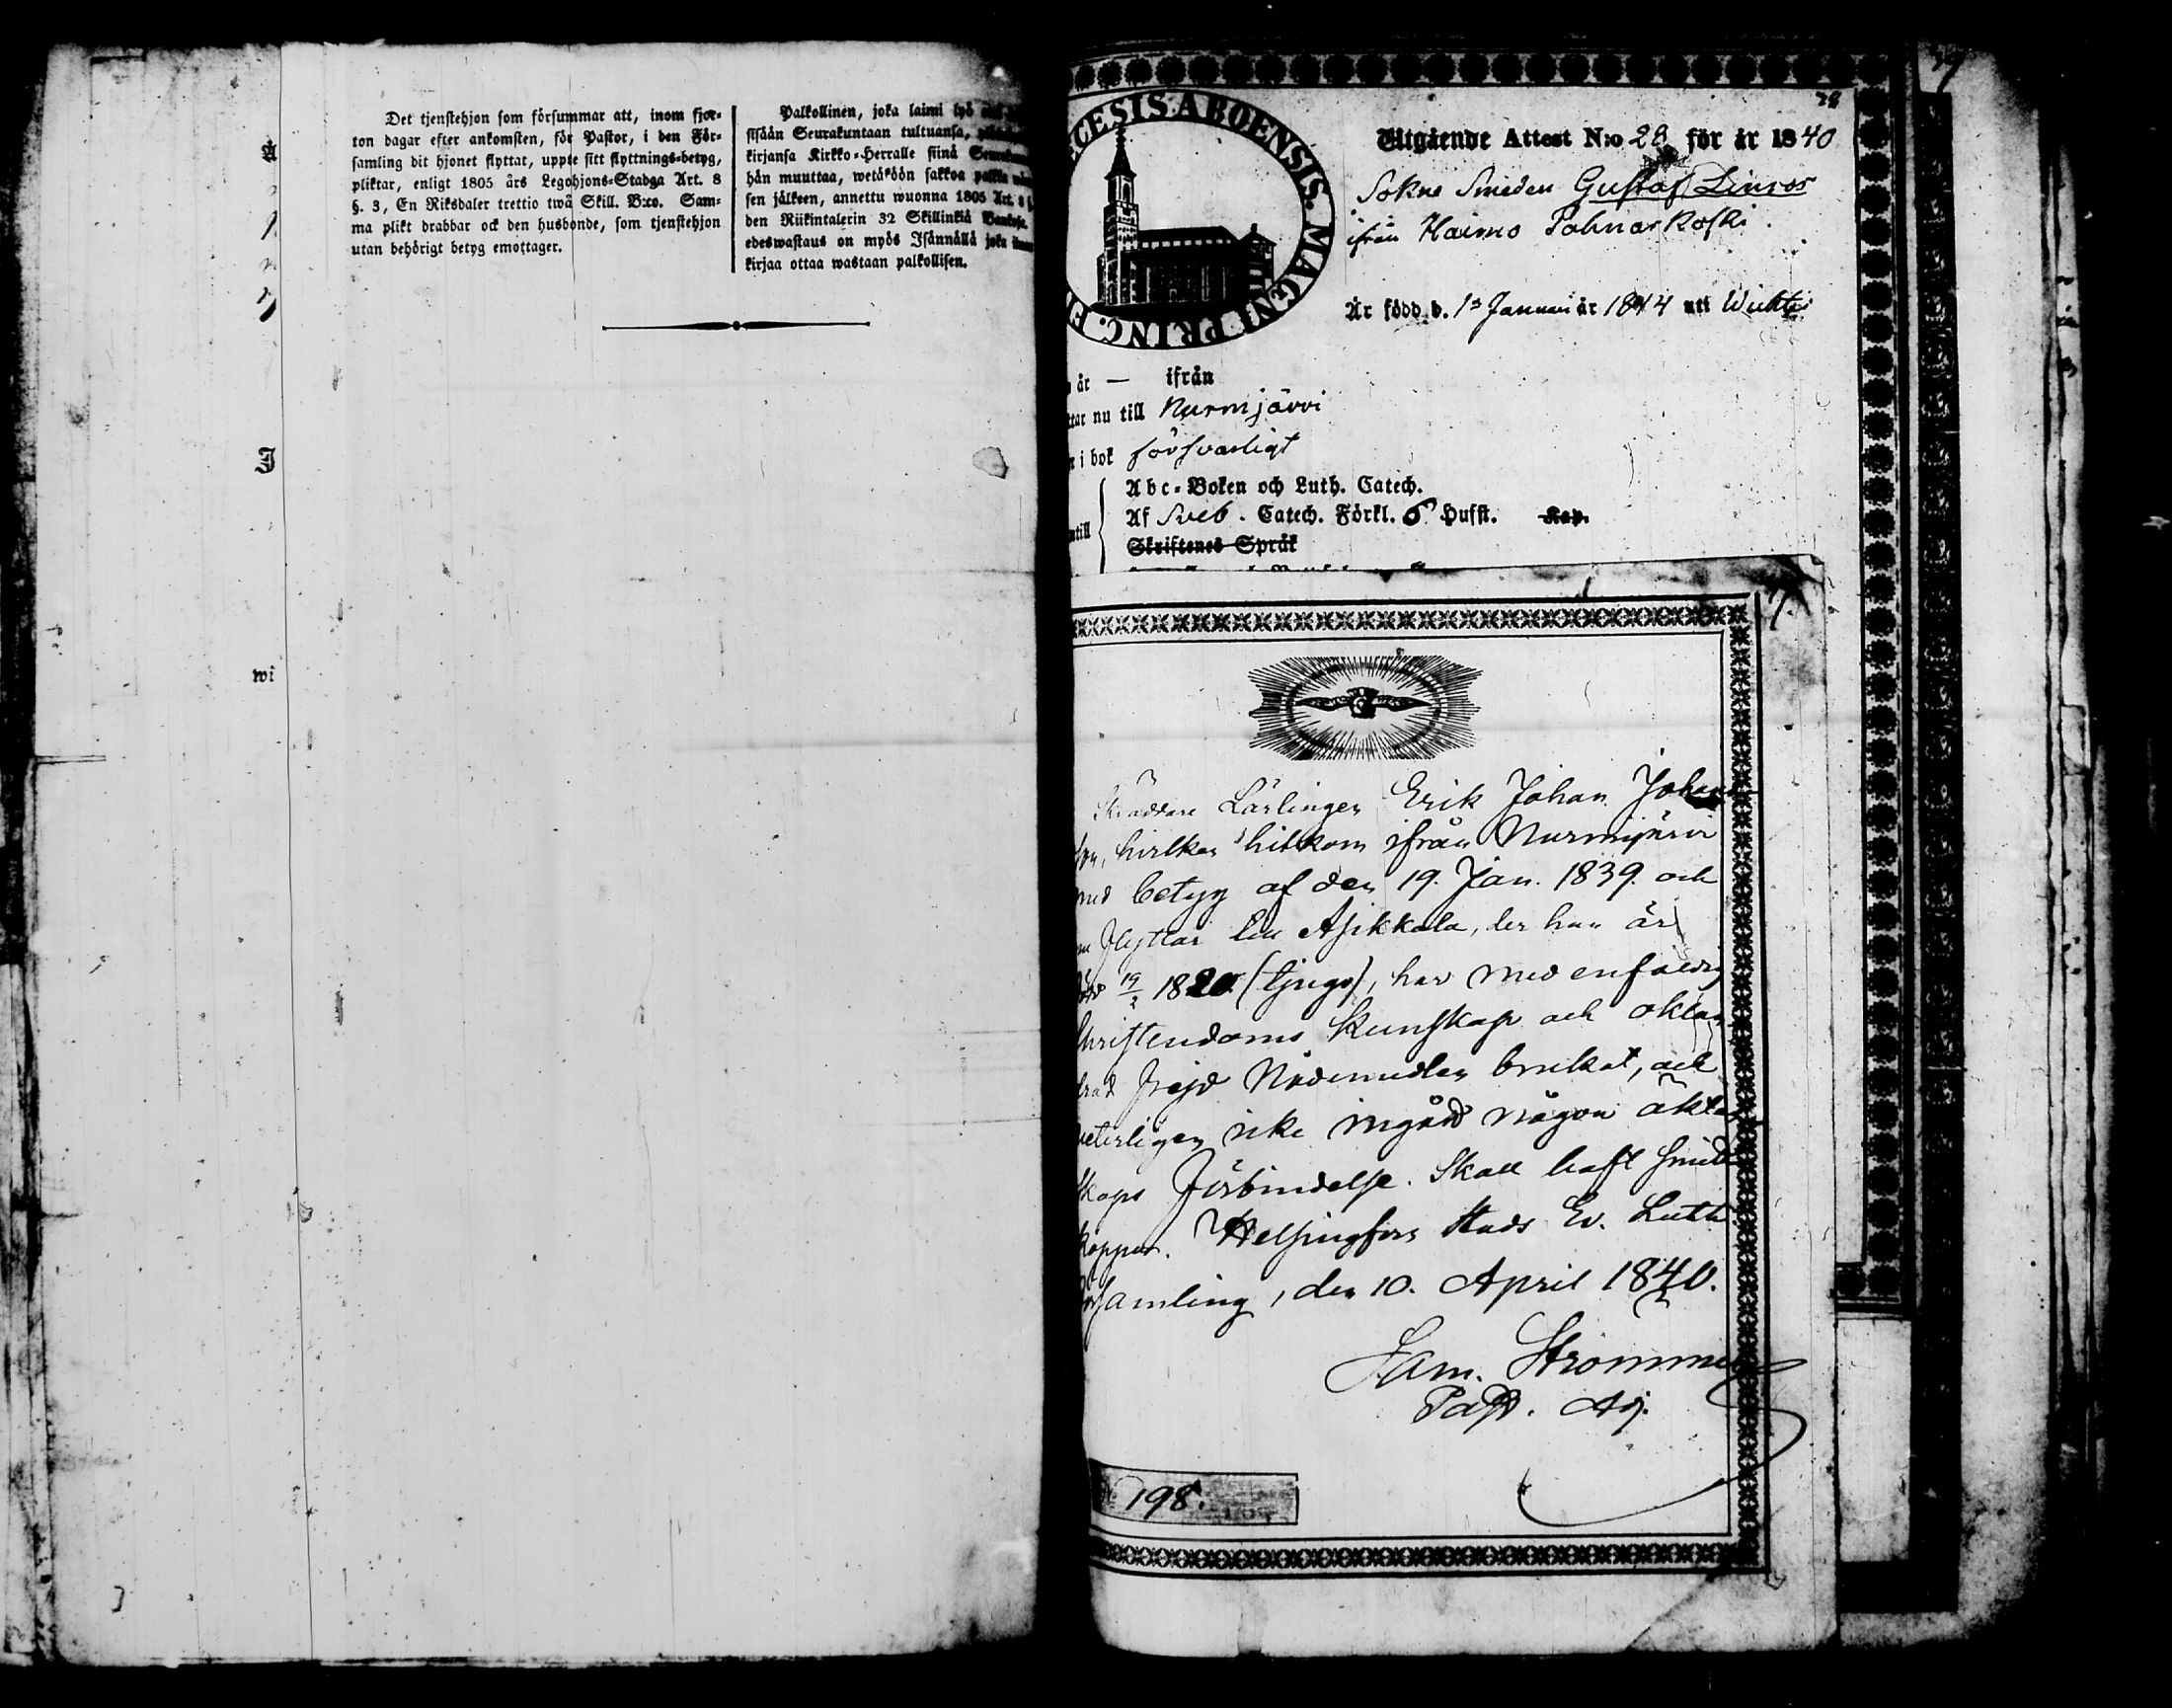 Det tjenstehjon som försummar att, inom fjor-
ton dagar efter ankomsten, för Pastor, i den För-
samling dit hjonet flyttat, uppte sitt flyttnings-betyg,
pliktar, enligt 1805 års Legohjons-Stadga Art. 8
§. 3, En Riksdaler trettio twå Skill. B:co. Sam-
ma plikt drabbar ock den husbonde, som tjenstehjon
utan behörigt betyg emottager.
Palkollinen, joka laimi lyö
sisään Seurakuntaan tultuansa,
kirjansa Kirkko-Herralle siinä
hän muuttaa, wetäköön sakkoa
sen jälkeen, annettu wuonna 1805 Art. 8
den Riikintalerin 32 Skillinkiä
edeswastaus on myös Isännällä joka
kirjaa ottaa wastaan palkollisen.
wi
ABOENSIS. MAGNI PRINC.
29
Utgående Attest N:o 28 för år 1840
Sokne Smeden Gustaf Linros
ifrån Haimo
Är född d. 1a Januari år 1844 uti Wichtis
år — ifrån
nu till Nurmjärvi
i bok försvarligt
Abc-Boken och Luth. Catech.
Af Sveb. Catech. Förkl. 6 Hufst. Kap.
Skriftenes Språk
Skräddare Lärlingen Erik Johan
hvilken hitkom ifrån Nurmijärvi
med betyg af den 19. Jan. 1839. och
flyttar till Asikkala, der han är
född 19/2 1820. (tjugo), har med enfaldig
Christendoms kunskap och oklan-
drad frejd Nådemedlen brukat, och
veterligen icke ingått någon äkten-
skaps Förbindelse. Skall haft smitt-
koppor. Helsingfors Stads Ev. Luth.
Församling, den 10. April 1840.
Sam. Strömmer
Past. Adj.
198.